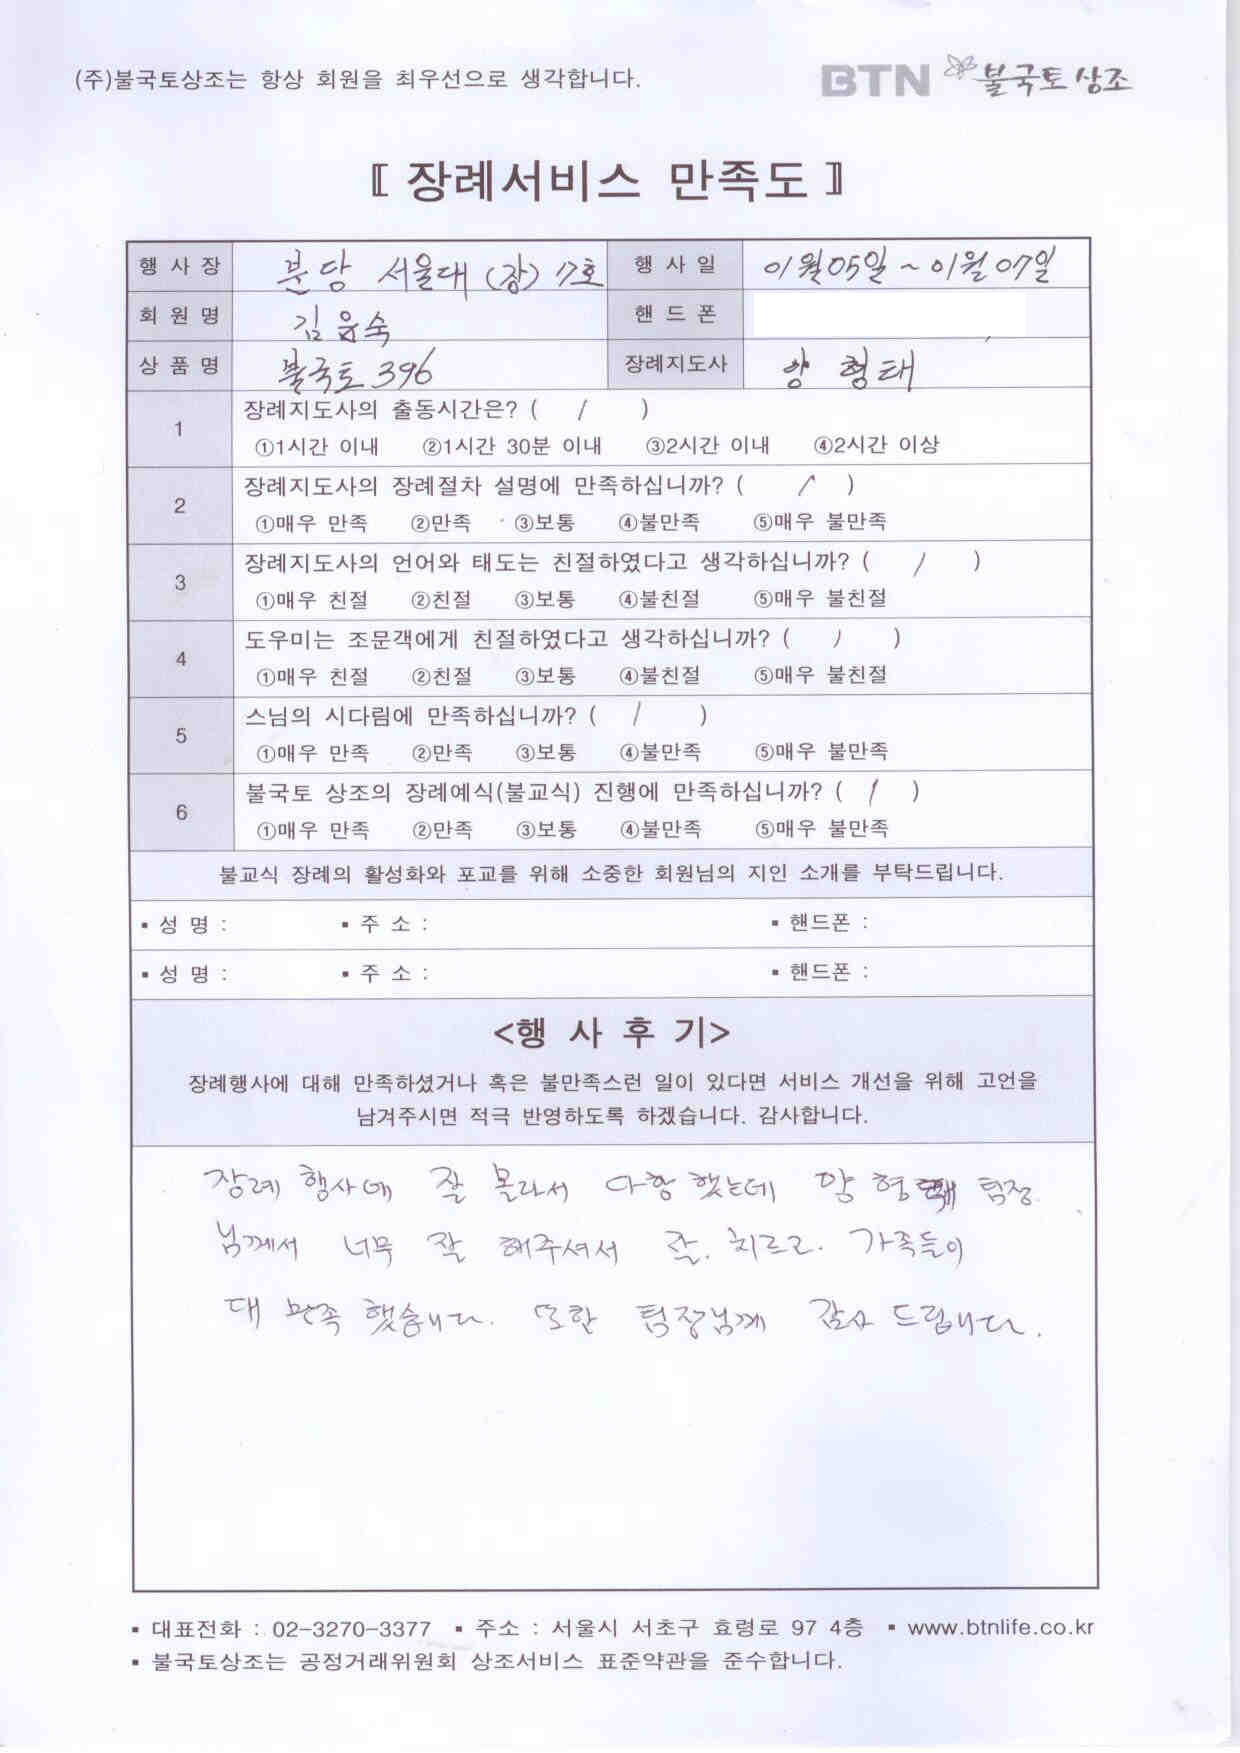 (주)불국토상조는 항상 회원을 최우선으로 생각합니다.
BTN 불국토 상조
〖 장례서비스 만족도 〗
행 사 장 분당 서울대 (장) 17호 행 사 일 01월05일 ~ 01월 07일
회 원 명 김윤숙 핸 드 폰
상 품 명 불국토 396 장례지도사 양 형태
1 장례지도사의 출동시간은? ( / )
①1시간 이내 ②1시간 30분 이내 ③2시간 이내 ④2시간 이상
2 장례지도사의 장례절차 설명에 만족하십니까? ( / )
①매우 만족 ②만족 ③보통 ④불만족 ⑤매우 불만족
3 장례지도사의 언어와 태도는 친절하였다고 생각하십니까? ( / )
①매우 친절 ②친절 ③보통 ④불친절 ⑤매우 불친절
4 도우미는 조문객에게 친절하였다고 생각하십니까? ( / )
①매우 친절 ②친절 ③보통 ④불친절 ⑤매우 불친절
5 스님의 시다림에 만족하십니까? ( / )
①매우 만족 ②만족 ③보통 ④불만족 ⑤매우 불만족
6 불국토 상조의 장례예식(불교식) 진행에 만족하십니까? ( / )
①매우 만족 ②만족 ③보통 ④불만족 ⑤매우 불만족
불교식 장례의 활성화와 포교를 위해 소중한 회원님의 지인 소개를 부탁드립니다.
▪ 성 명 : ▪ 주 소 : ▪ 핸드폰 :
▪ 성 명 : ▪ 주 소 : ▪ 핸드폰 :
<행 사 후 기>
장례행사에 대해 만족하셨거나 혹은 불만족스런 일이 있다면 서비스 개선을 위해 고언을
남겨주시면 적극 반영하도록 하겠습니다. 감사합니다.
장례 행사에 잘 몰라서 다항 했는데 양 형태 팀장
님께서 너무 잘 해주셔서 잘. 치르고. 가족들이
대 만족 했습니다. 또한 팀장님께 감사 드립니다.
▪ 대표전화 : 02-3270-3377 ▪ 주소 : 서울시 서초구 효령로 97 4층 ▪ www.btnlife.co.kr
▪ 불국토상조는 공정거래위원회 상조서비스 표준약관을 준수합니다.